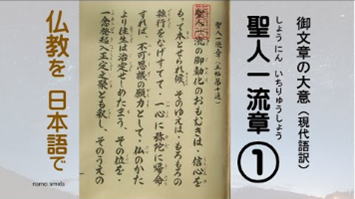 御文章の大意（現代語訳）
しょうにん いちりゅうしょう
聖人一流章①
聖人一流章（五帖第十通）
聖人一流の御勧化のおもむきは、信心を
もって本とせられ候。そのゆえは、もろもろの
雑行をなげすてて、一心に弥陀に帰命
すれば、不可思議の願力として、仏のかた
より往生は治定せしめたまう。その位を、
一念発起入正定之聚とも釈し、そのうえの
仏教を 日本語で